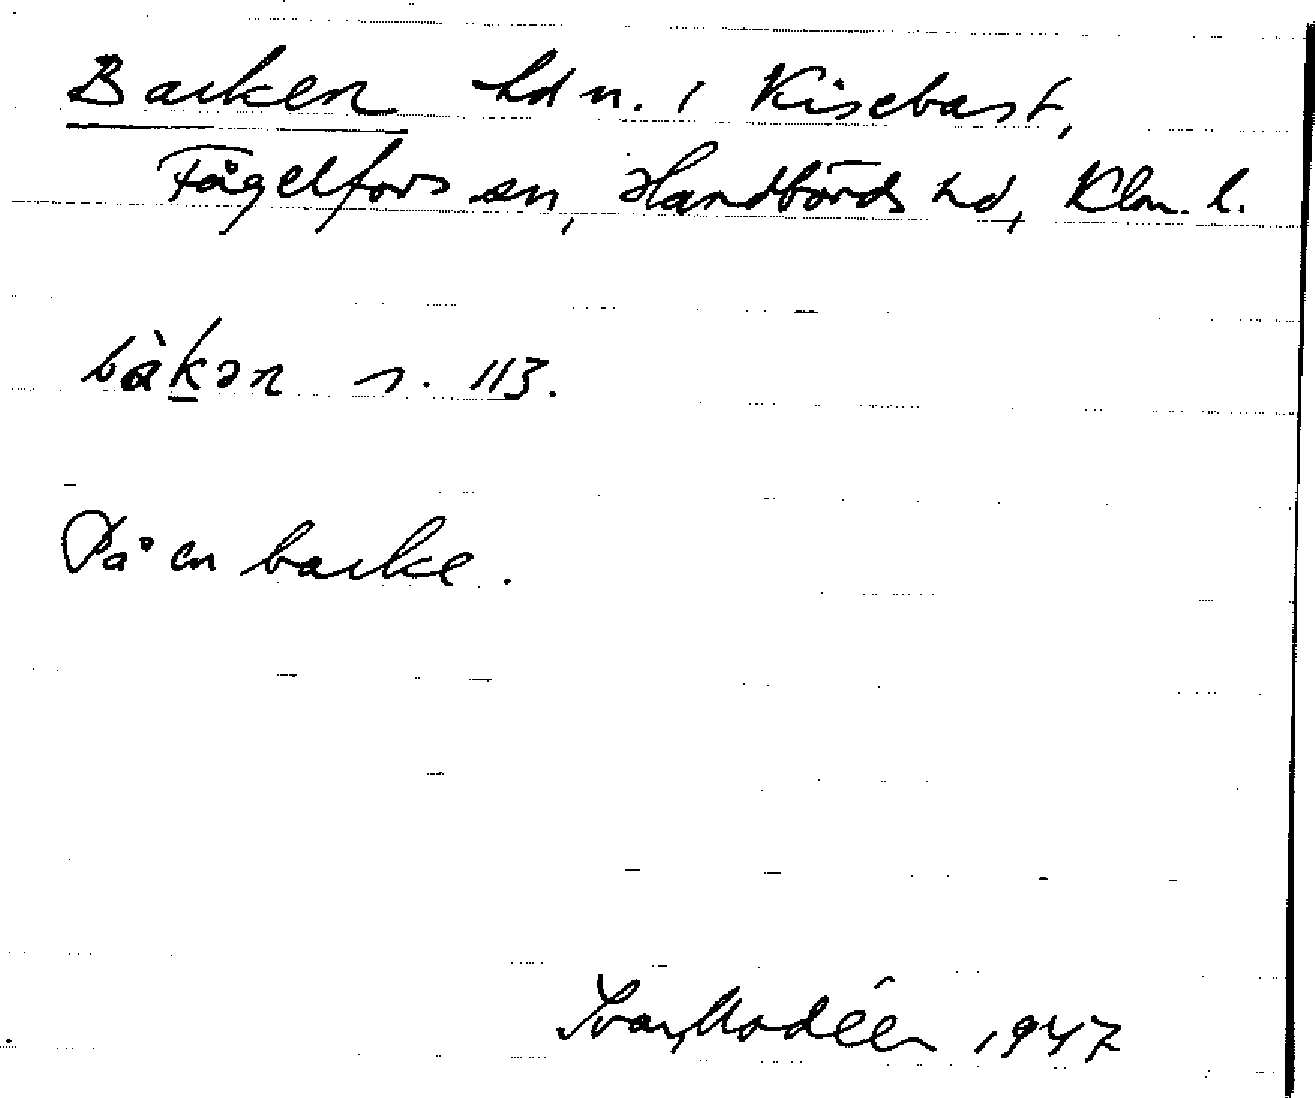 Backen hdn. i Kisebast,
Fågelfors sn, Handbörds hd, Klm. l.
bàk̲ən s. 113.
På en backe.
Ivar Modéer 1947